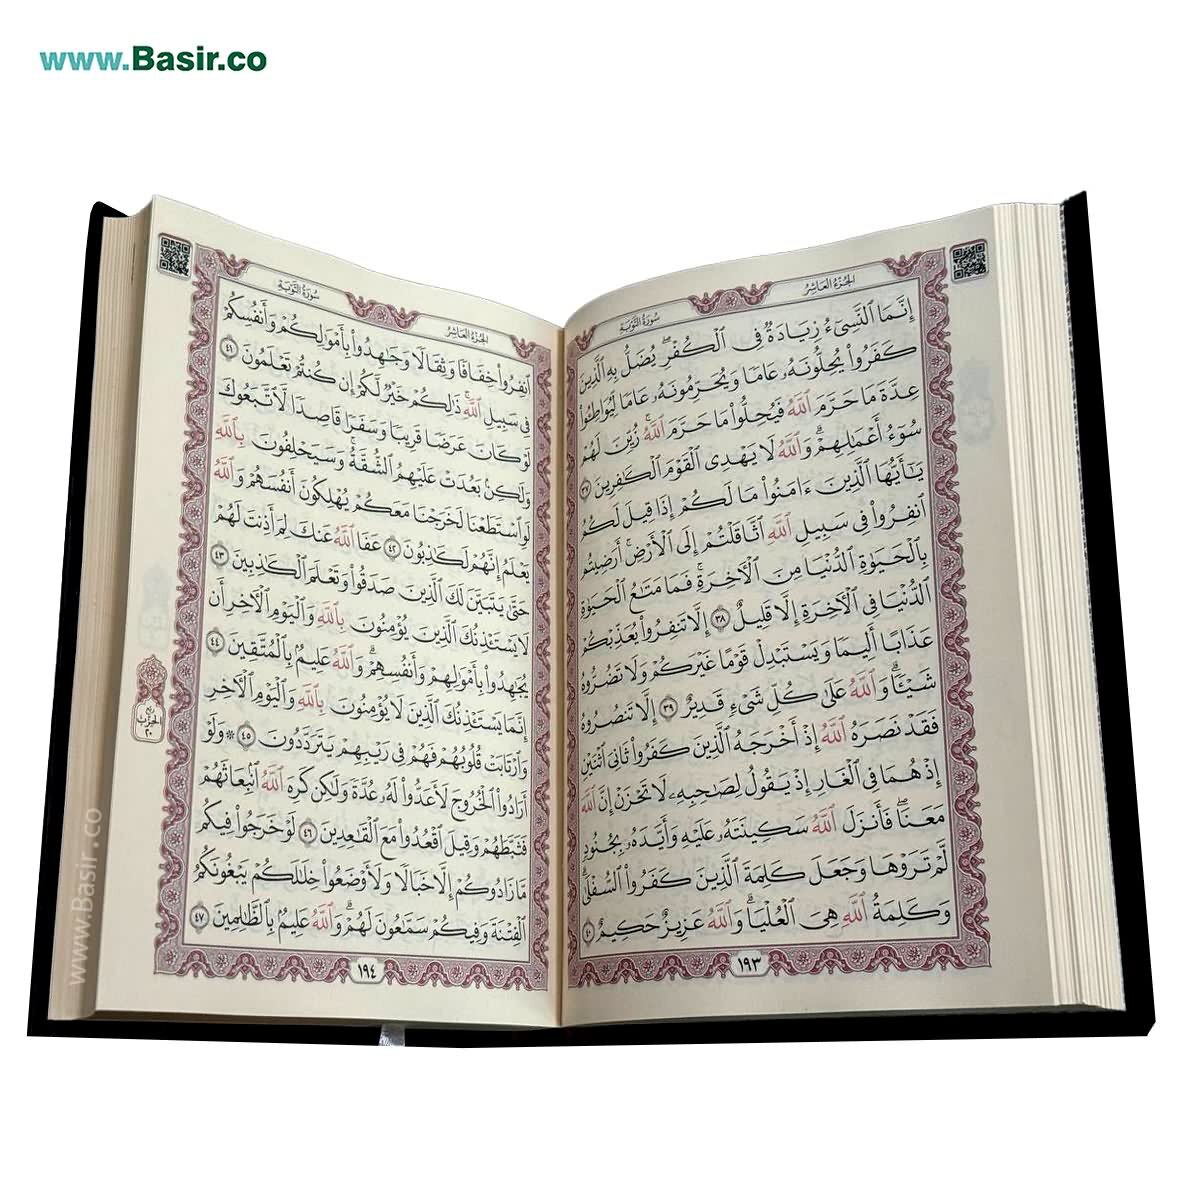 www.Basir.co
الجُزْءُ العَاشِرُ
سُورَةُ التَّوْبَةِ
إِنَّمَا ٱلنَّسِىٓءُ زِيَادَةٌ فِى ٱلْكُفْرِ ۖ يُضَلُّ بِهِ ٱلَّذِينَ
كَفَرُوا۟ يُحِلُّونَهُۥ عَامًا وَيُحَرِّمُونَهُۥ عَامًا لِّيُوَاطِـُٔوا۟
عِدَّةَ مَا حَرَّمَ ٱللَّهُ فَيُحِلُّوا۟ مَا حَرَّمَ ٱللَّهُ ۚ زُيِّنَ لَهُمْ
سُوٓءُ أَعْمَٰلِهِمْ ۗ وَٱللَّهُ لَا يَهْدِى ٱلْقَوْمَ ٱلْكَٰفِرِينَ ٣٧
يَٰٓأَيُّهَا ٱلَّذِينَ ءَامَنُوا۟ مَا لَكُمْ إِذَا قِيلَ لَكُمُ
ٱنفِرُوا۟ فِى سَبِيلِ ٱللَّهِ ٱثَّاقَلْتُمْ إِلَى ٱلْأَرْضِ ۚ أَرَضِيتُم
بِٱلْحَيَوٰةِ ٱلدُّنْيَا مِنَ ٱلْءَاخِرَةِ ۚ فَمَا مَتَٰعُ ٱلْحَيَوٰةِ
ٱلدُّنْيَا فِى ٱلْءَاخِرَةِ إِلَّا قَلِيلٌ ٣٨ إِلَّا تَنفِرُوا۟ يُعَذِّبْكُمْ
عَذَابًا أَلِيمًا وَيَسْتَبْدِلْ قَوْمًا غَيْرَكُمْ وَلَا تَضُرُّوهُ
شَيْـًٔا ۗ وَٱللَّهُ عَلَىٰ كُلِّ شَىْءٍ قَدِيرٌ ٣٩ إِلَّا تَنصُرُوهُ
فَقَدْ نَصَرَهُ ٱللَّهُ إِذْ أَخْرَجَهُ ٱلَّذِينَ كَفَرُوا۟ ثَانِىَ ٱثْنَيْنِ
إِذْ هُمَا فِى ٱلْغَارِ إِذْ يَقُولُ لِصَٰحِبِهِۦ لَا تَحْزَنْ إِنَّ ٱللَّهَ
مَعَنَا ۖ فَأَنزَلَ ٱللَّهُ سَكِينَتَهُۥ عَلَيْهِ وَأَيَّدَهُۥ بِجُنُودٍ
لَّمْ تَرَوْهَا وَجَعَلَ كَلِمَةَ ٱلَّذِينَ كَفَرُوا۟ ٱلسُّفْلَىٰ ۗ
وَكَلِمَةُ ٱللَّهِ هِىَ ٱلْعُلْيَا ۗ وَٱللَّهُ عَزِيزٌ حَكِيمٌ ٤٠
١٩٣
الجُزْءُ العَاشِرُ
سُورَةُ التَّوْبَةِ
ٱنفِرُوا۟ خِفَافًا وَثِقَالًا وَجَٰهِدُوا۟ بِأَمْوَٰلِكُمْ وَأَنفُسِكُمْ
فِى سَبِيلِ ٱللَّهِ ۚ ذَٰلِكُمْ خَيْرٌ لَّكُمْ إِن كُنتُمْ تَعْلَمُونَ ٤١
لَوْ كَانَ عَرَضًا قَرِيبًا وَسَفَرًا قَاصِدًا لَّٱتَّبَعُوكَ
وَلَٰكِنۢ بَعُدَتْ عَلَيْهِمُ ٱلشُّقَّةُ ۚ وَسَيَحْلِفُونَ بِٱللَّهِ
لَوِ ٱسْتَطَعْنَا لَخَرَجْنَا مَعَكُمْ يُهْلِكُونَ أَنفُسَهُمْ وَٱللَّهُ
يَعْلَمُ إِنَّهُمْ لَكَٰذِبُونَ ٤٢ عَفَا ٱللَّهُ عَنكَ لِمَ أَذِنتَ لَهُمْ
حَتَّىٰ يَتَبَيَّنَ لَكَ ٱلَّذِينَ صَدَقُوا۟ وَتَعْلَمَ ٱلْكَٰذِبِينَ ٤٣
لَا يَسْتَـْٔذِنُكَ ٱلَّذِينَ يُؤْمِنُونَ بِٱللَّهِ وَٱلْيَوْمِ ٱلْءَاخِرِ أَن
يُجَٰهِدُوا۟ بِأَمْوَٰلِهِمْ وَأَنفُسِهِمْ ۗ وَٱللَّهُ عَلِيمٌۢ بِٱلْمُتَّقِينَ ٤٤
إِنَّمَا يَسْتَـْٔذِنُكَ ٱلَّذِينَ لَا يُؤْمِنُونَ بِٱللَّهِ وَٱلْيَوْمِ ٱلْءَاخِرِ
وَٱرْتَابَتْ قُلُوبُهُمْ فَهُمْ فِى رَيْبِهِمْ يَتَرَدَّدُونَ ٤٥ ۞ وَلَوْ
أَرَادُوا۟ ٱلْخُرُوجَ لَأَعَدُّوا۟ لَهُۥ عُدَّةً وَلَٰكِن كَرِهَ ٱللَّهُ ٱنۢبِعَاثَهُمْ
فَثَبَّطَهُمْ وَقِيلَ ٱقْعُدُوا۟ مَعَ ٱلْقَٰعِدِينَ ٤٦ لَوْ خَرَجُوا۟ فِيكُم
مَّا زَادُوكُمْ إِلَّا خَبَالًا وَلَأَوْضَعُوا۟ خِلَٰلَكُمْ يَبْغُونَكُمُ
ٱلْفِتْنَةَ وَفِيكُمْ سَمَّٰعُونَ لَهُمْ ۗ وَٱللَّهُ عَلِيمٌۢ بِٱلظَّٰلِمِينَ ٤٧
١٩٤
ربع
الحزب
٢٠
www.Basir.co